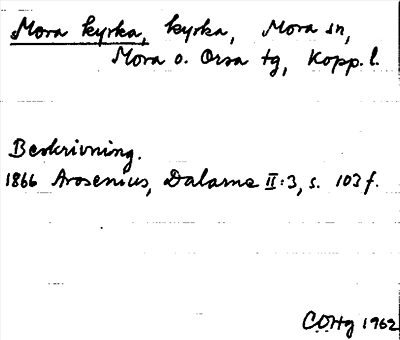 Mora kyrka, kyrka, Mora sn,
Mora o. Orsa tg, Kopp. l.
Beskrivning.
1866 Arosenius, Dalarne II:3, s. 103 f.
COHg 1962